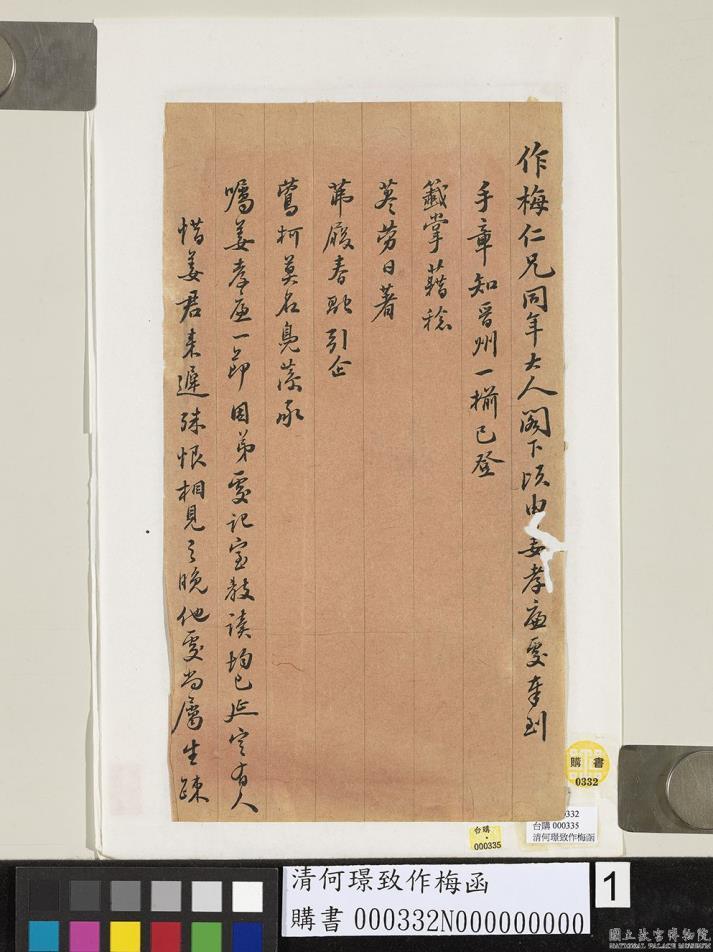 作梅仁兄同年大人閣下頃由姜孝廉處奉到
手章知晉州一槅已登
籤掌藉稔
荩勞日著
茀履春融引企
鶯柯莫名鳧藻承
囑姜孝廉一節因弟處記室教讀均已延定有人
惜姜君來遲殊恨相見之晚他處尚屬生疎
購書
0332
332
台購 000335
清何璟致作梅函
台購
000335
清何璟致作梅函
購書 000332N000000000
1
國立故宮博物院
NATIONAL PALACE MUSEUM